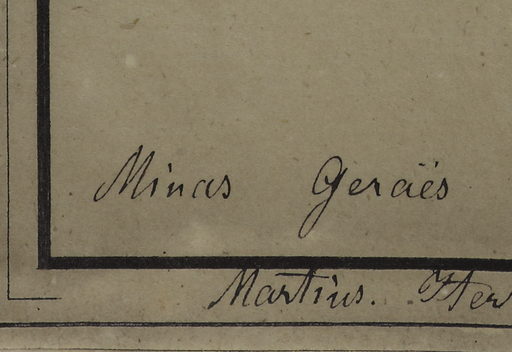 Minas Geraës
Martius. Iter